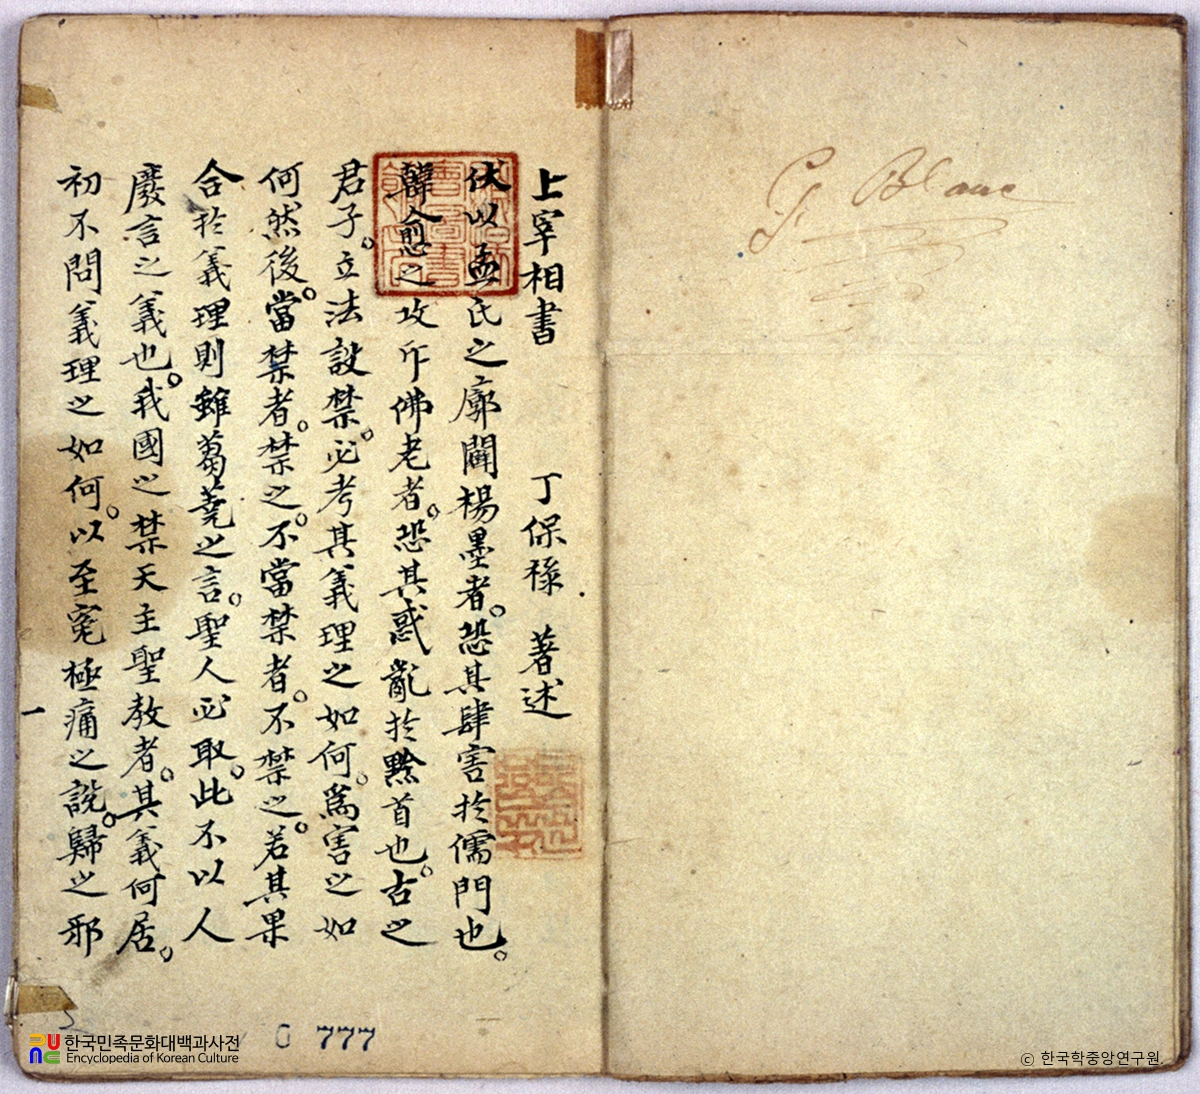 上宰相書 丁保祿 著述
伏以孟氏之廓闢楊墨者。恐其肆害於儒門也。
韓愈之攻斥佛老者。恐其惑亂於黔首也。古之
君子。立法設禁。必考其義理之如何。爲害之如
何然後。當禁者。禁之。不當禁者。不禁之。若其果
合於義理則雖蒭蕘之言。聖人必取。此不以人
廢言之義也。我國之禁天主聖敎者。其義何居。
初不問義理之如何。以至寃極痛之說。歸之邪
一
G. Blanc
G 777
한국민족문화대백과사전
Encyclopedia of Korean Culture
ⓒ 한국학중앙연구원